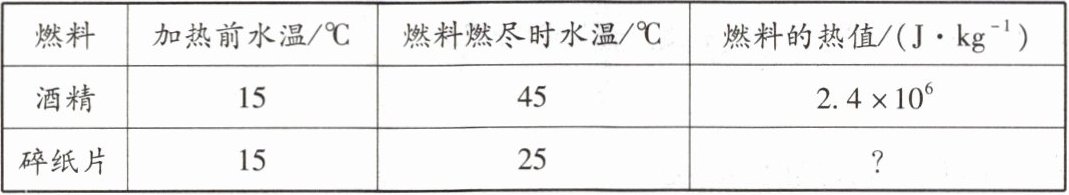 燃料 加热前水温/℃ 燃料燃尽时水温/℃ 燃料的热值/(J·kg⁻¹)
酒精 15 45 2.4×10⁶
碎纸片 15 25 ?